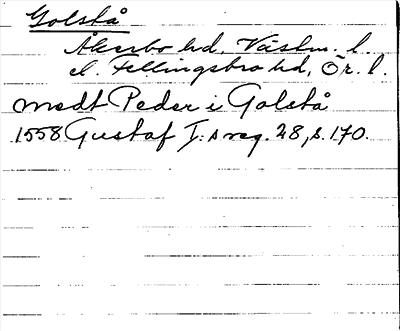 Golstå
Åkerbo hd, Västm. l.
el. Fellingsbro hd, Ör. l.
medt Peder i Golstå
1558 Gustaf I:s reg. 28, s. 170.